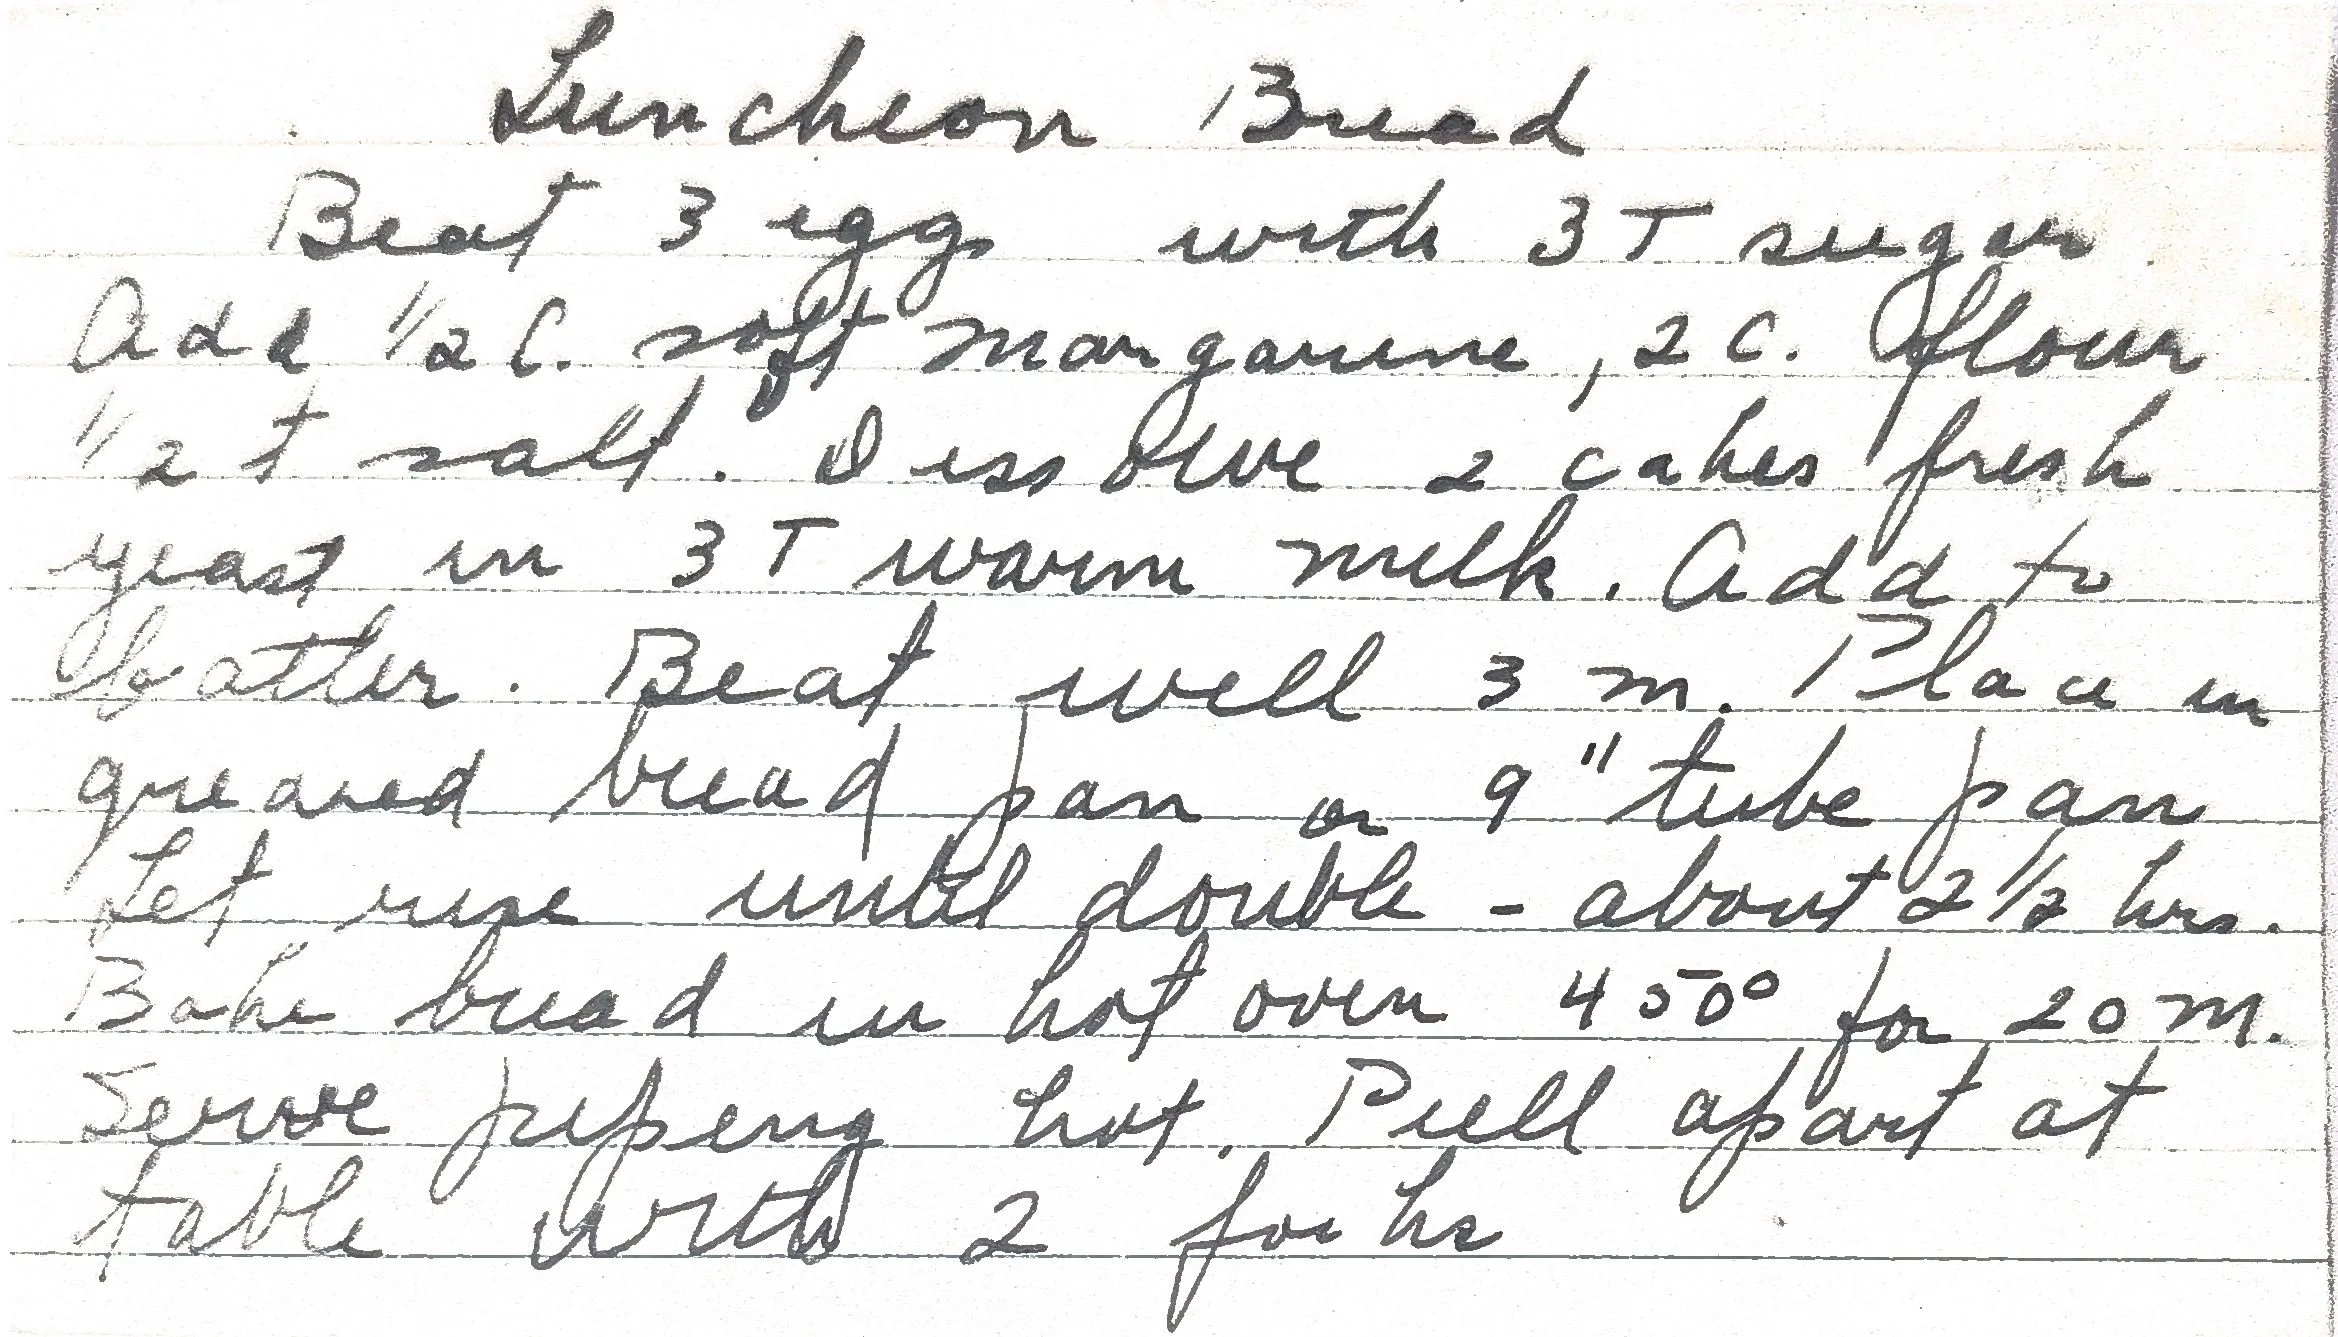 Luncheon Bread
Beat 3 eggs with 3 T sugar
Add 1/2 C. soft margarine, 2 C. flour
1/2 t salt. Dissolve 2 cakes fresh
yeast in 3 T warm milk. Add to
batter. Beat well 3 m. Place in
greased bread pan or 9" tube pan
Let rise until double - about 2 1/2 hrs.
Bake bread in hot oven 450° for 20 m.
Serve pipeing hot. Pull apart at
table with 2 forks